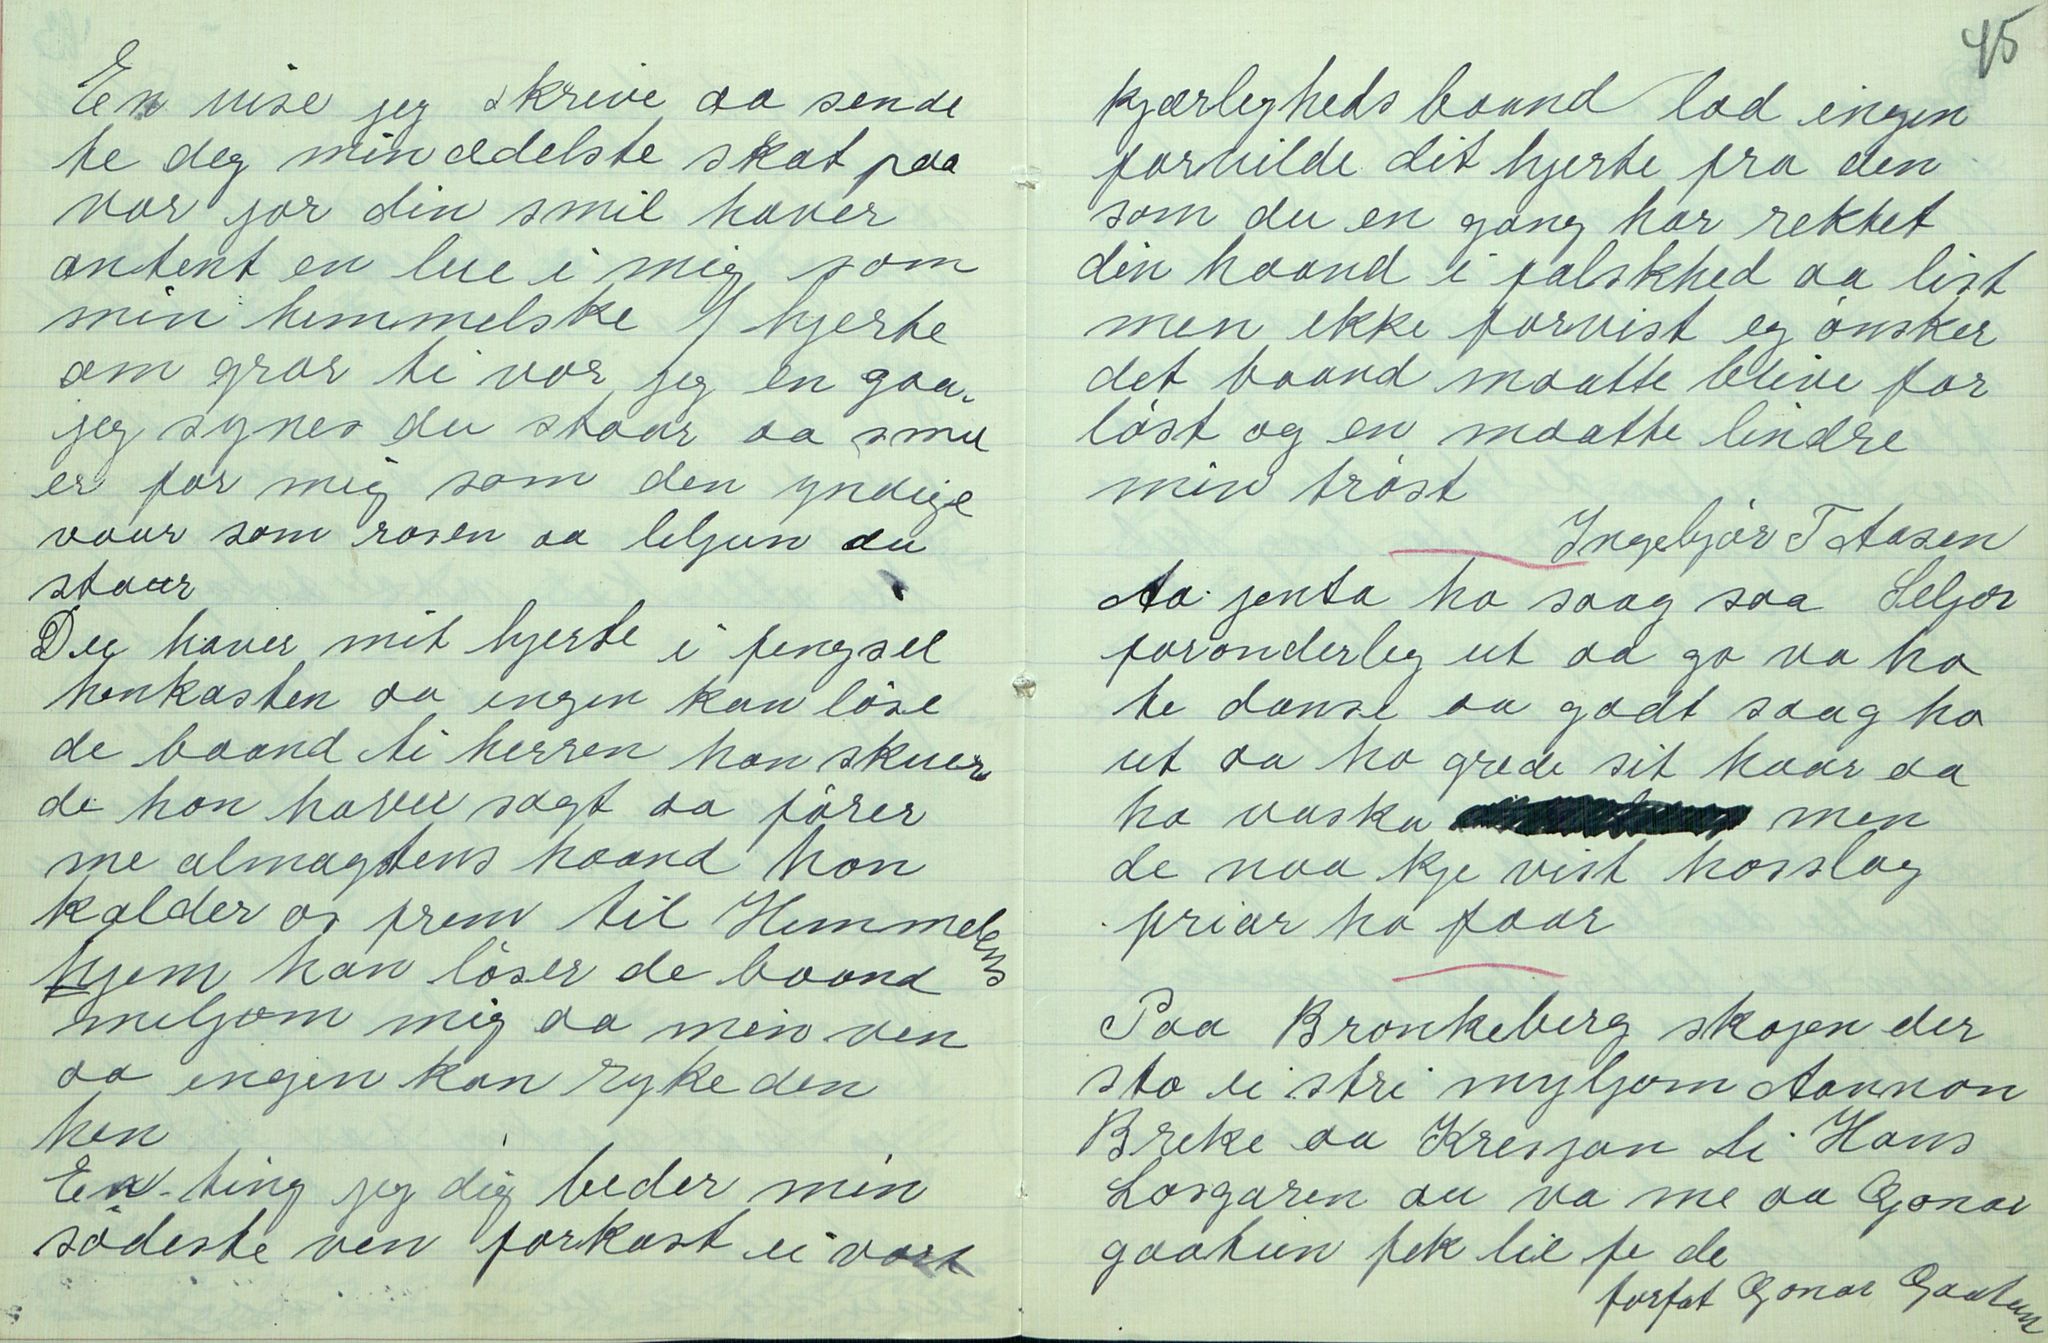 En vise jeg skrive aa sende
te deg min ædelste skat paa
vor jor din smil haver
antent en lue i mig som
min hemmelske hjerte
om gror ti vor jeg en gaa.
jeg synes du staar aa smil
er for mig som den yndige
vaar som rosen aa liljun du
staar
Du haver mit hjerte i fengsel
henkasten aa ingen kan løse
de baand ti herren han skuer
de han haver sagt aa fører
me almagtens haand han
kalder os frem til Hemmelens
hjem han løser de baand
meljom mig aa min ven
aa ingen kan ryke den
hen
En ting jeg dig beder min
sødeste ven forkast ei vort
45
kjærligheds baand lad ingen
forvilde dit hjerte fra den
som du en gang har rektet
din haand i falskhed aa list
men ikke forvist eg ønsker
det baand maatte blive for
løst og en maatte lindre
min trøst
Ingebjør T Aasen
Aa jenta ho saag saa Seljor
foronderleg ut aa go va ho
te danse aa godt saag ho
ut aa ho græde sit haar aa
ho vaska men
de naa kje vist hosslag
friar ho faar
Paa Bronkeberg skogen der
sto ei stri myljom Aannon
Breke aa Kresjan Li Hans
Losgaren au va me aa Gonar
gaatun fek lie fe de
forfat Gonar Gaatun